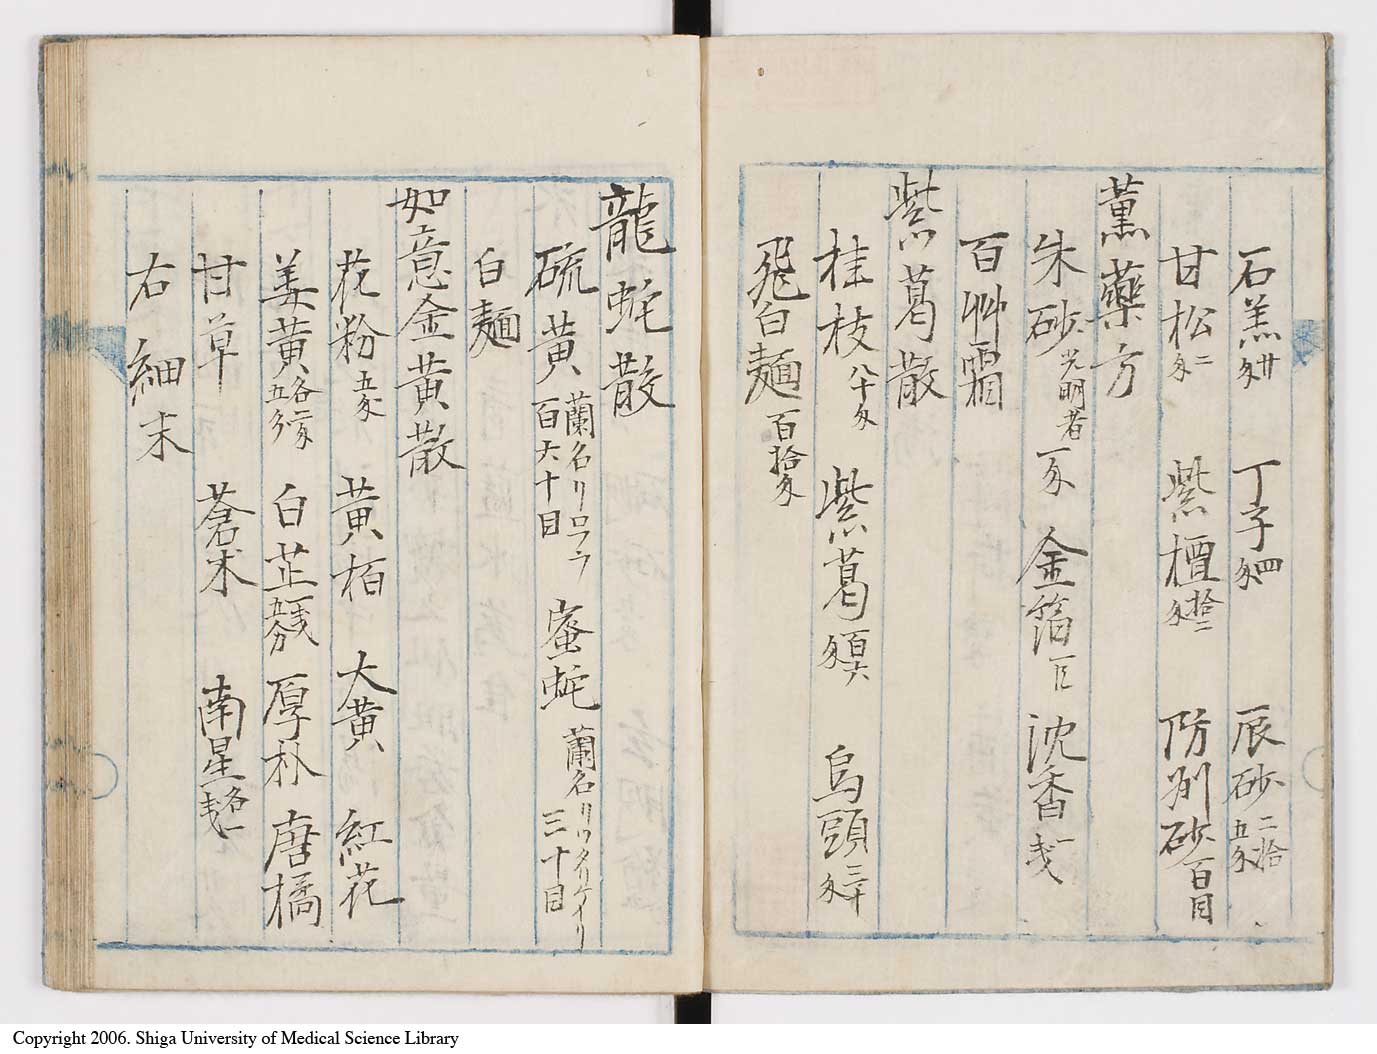 石羔 廿匁 丁子 四匁 辰砂 二拾五匁
甘松 二匁 紫檀 拾二匁 防州砂 百目
薫藥方
朱砂 光明者 一匁 金箔 沈香 一戔
百艸霜
紫葛散
桂枝 八十匁 紫葛 百六匁 烏頭 三十匁
飛白麺 百拾匁
龍蛇散
硫黄 蘭名リ 百六十目 蜜蛇 蘭名リ 三十目
白麺
如意金黄散
花粉 五匁 黄栢 大黄 紅花
姜黄 各 白芷 厚朴 唐橘
甘草 蒼朮 南星 各一戔
右細末
Copyright 2006. Shiga University of Medical Science Library